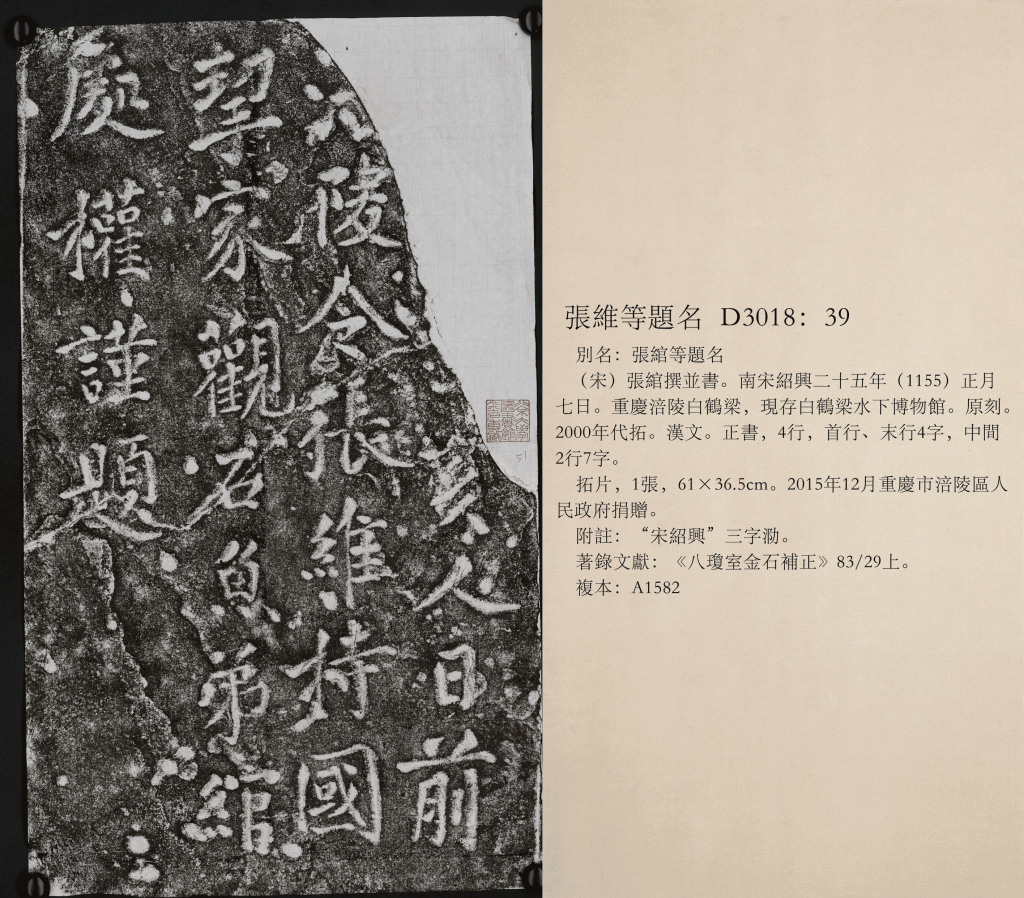 亥人日前
陵令張維持國
挈家觀石魚弟綰
處權謹題
51
張維等題名 D3018：39
別名：張綰等題名
（宋）張綰撰並書。南宋紹興二十五年（1155）正月
七日。重慶涪陵白鶴梁，現存白鶴梁水下博物館。原刻。
2000年代拓。漢文。正書，4行，首行、末行4字，中間
2行7字。
拓片，1張，61×36.5cm。2015年12月重慶市涪陵區人
民政府捐贈。
附註：“宋紹興”三字泐。
著錄文獻：《八瓊室金石補正》83/29上。
複本：A1582